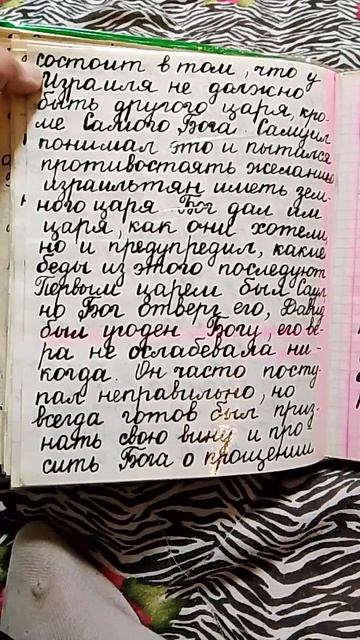 состоит в том, что у
Израиля не должно
быть другого царя, кро-
ме Самого Бога. Самуил
понимал это и пытался
противостоять желанию
израильтян иметь зем-
ного царя Бог дал им
царя, как они хотели,
но и предупредил, какие
беды из этого последуют
Первым царем был Саул
но Бог отверг его, Давид
был угоден Богу, его ве-
ра не ослабевала ни-
когда. Он часто посту-
пал неправильно, но
всегда готов был приз-
нать свою вину и про
сить Бога о прощении